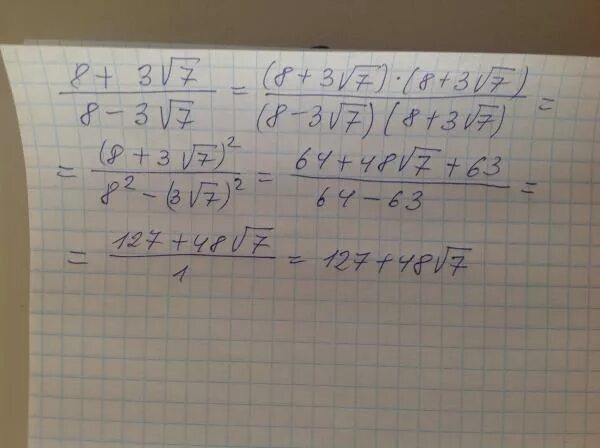 (8 + 3√7)/(8 − 3√7) = ((8 + 3√7)·(8 + 3√7))/((8 − 3√7)(8 + 3√7)) =
= (8 + 3√7)²/(8² − (3√7)²) = (64 + 48√7 + 63)/(64 − 63) =
= (127 + 48√7)/1 = 127 + 48√7